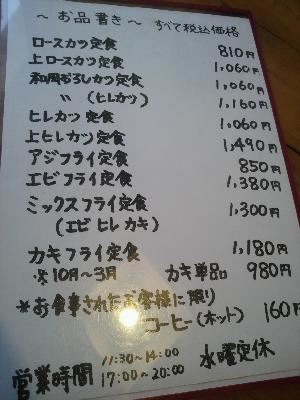 ～お品書き～ すべて税込価格
ロースカツ定食 810円
上ロースカツ定食 1,060円
和風おろしカツ定食 1,060円
〃 (ヒレカツ) 1,160円
ヒレカツ定食 1,060円
上ヒレカツ定食 1,490円
アジフライ定食 850円
エビフライ定食 1,380円
ミックスフライ定食 1,300円
(エビ ヒレ カキ)
カキフライ定食 1,180円
※10月～3月 カキ単品 980円
*お食事されたお客様に限り
コーヒー(ホット) 160円
営業時間 11:30～14:00 水曜定休
17:00～20:00